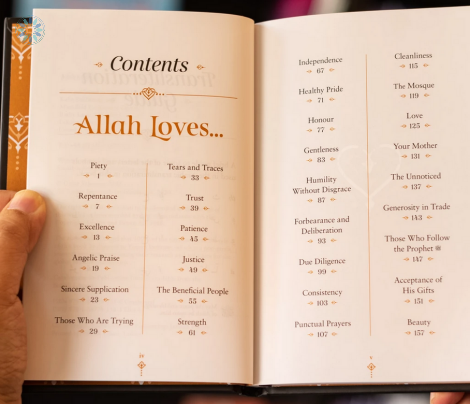 Contents
Allah Loves...
Piety
1
Repentance
7
Excellence
13
Angelic Praise
19
Sincere Supplication
23
Those Who Are Trying
29
Tears and Traces
33
Trust
39
Patience
45
Justice
49
The Beneficial People
55
Strength
61
Independence
67
Healthy Pride
71
Honour
77
Gentleness
83
Humility
Without Disgrace
87
Forbearance and
Deliberation
93
Due Diligence
99
Consistency
103
Punctual Prayers
107
Cleanliness
115
The Mosque
119
Love
125
Your Mother
131
The Unnoticed
137
Generosity in Trade
143
Those Who Follow
the Prophet ﷺ
147
Acceptance of
His Gifts
151
Beauty
157